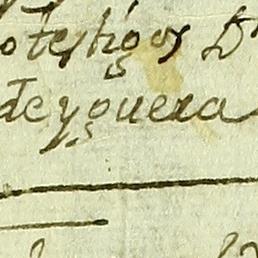 o testigos D.
de yguera